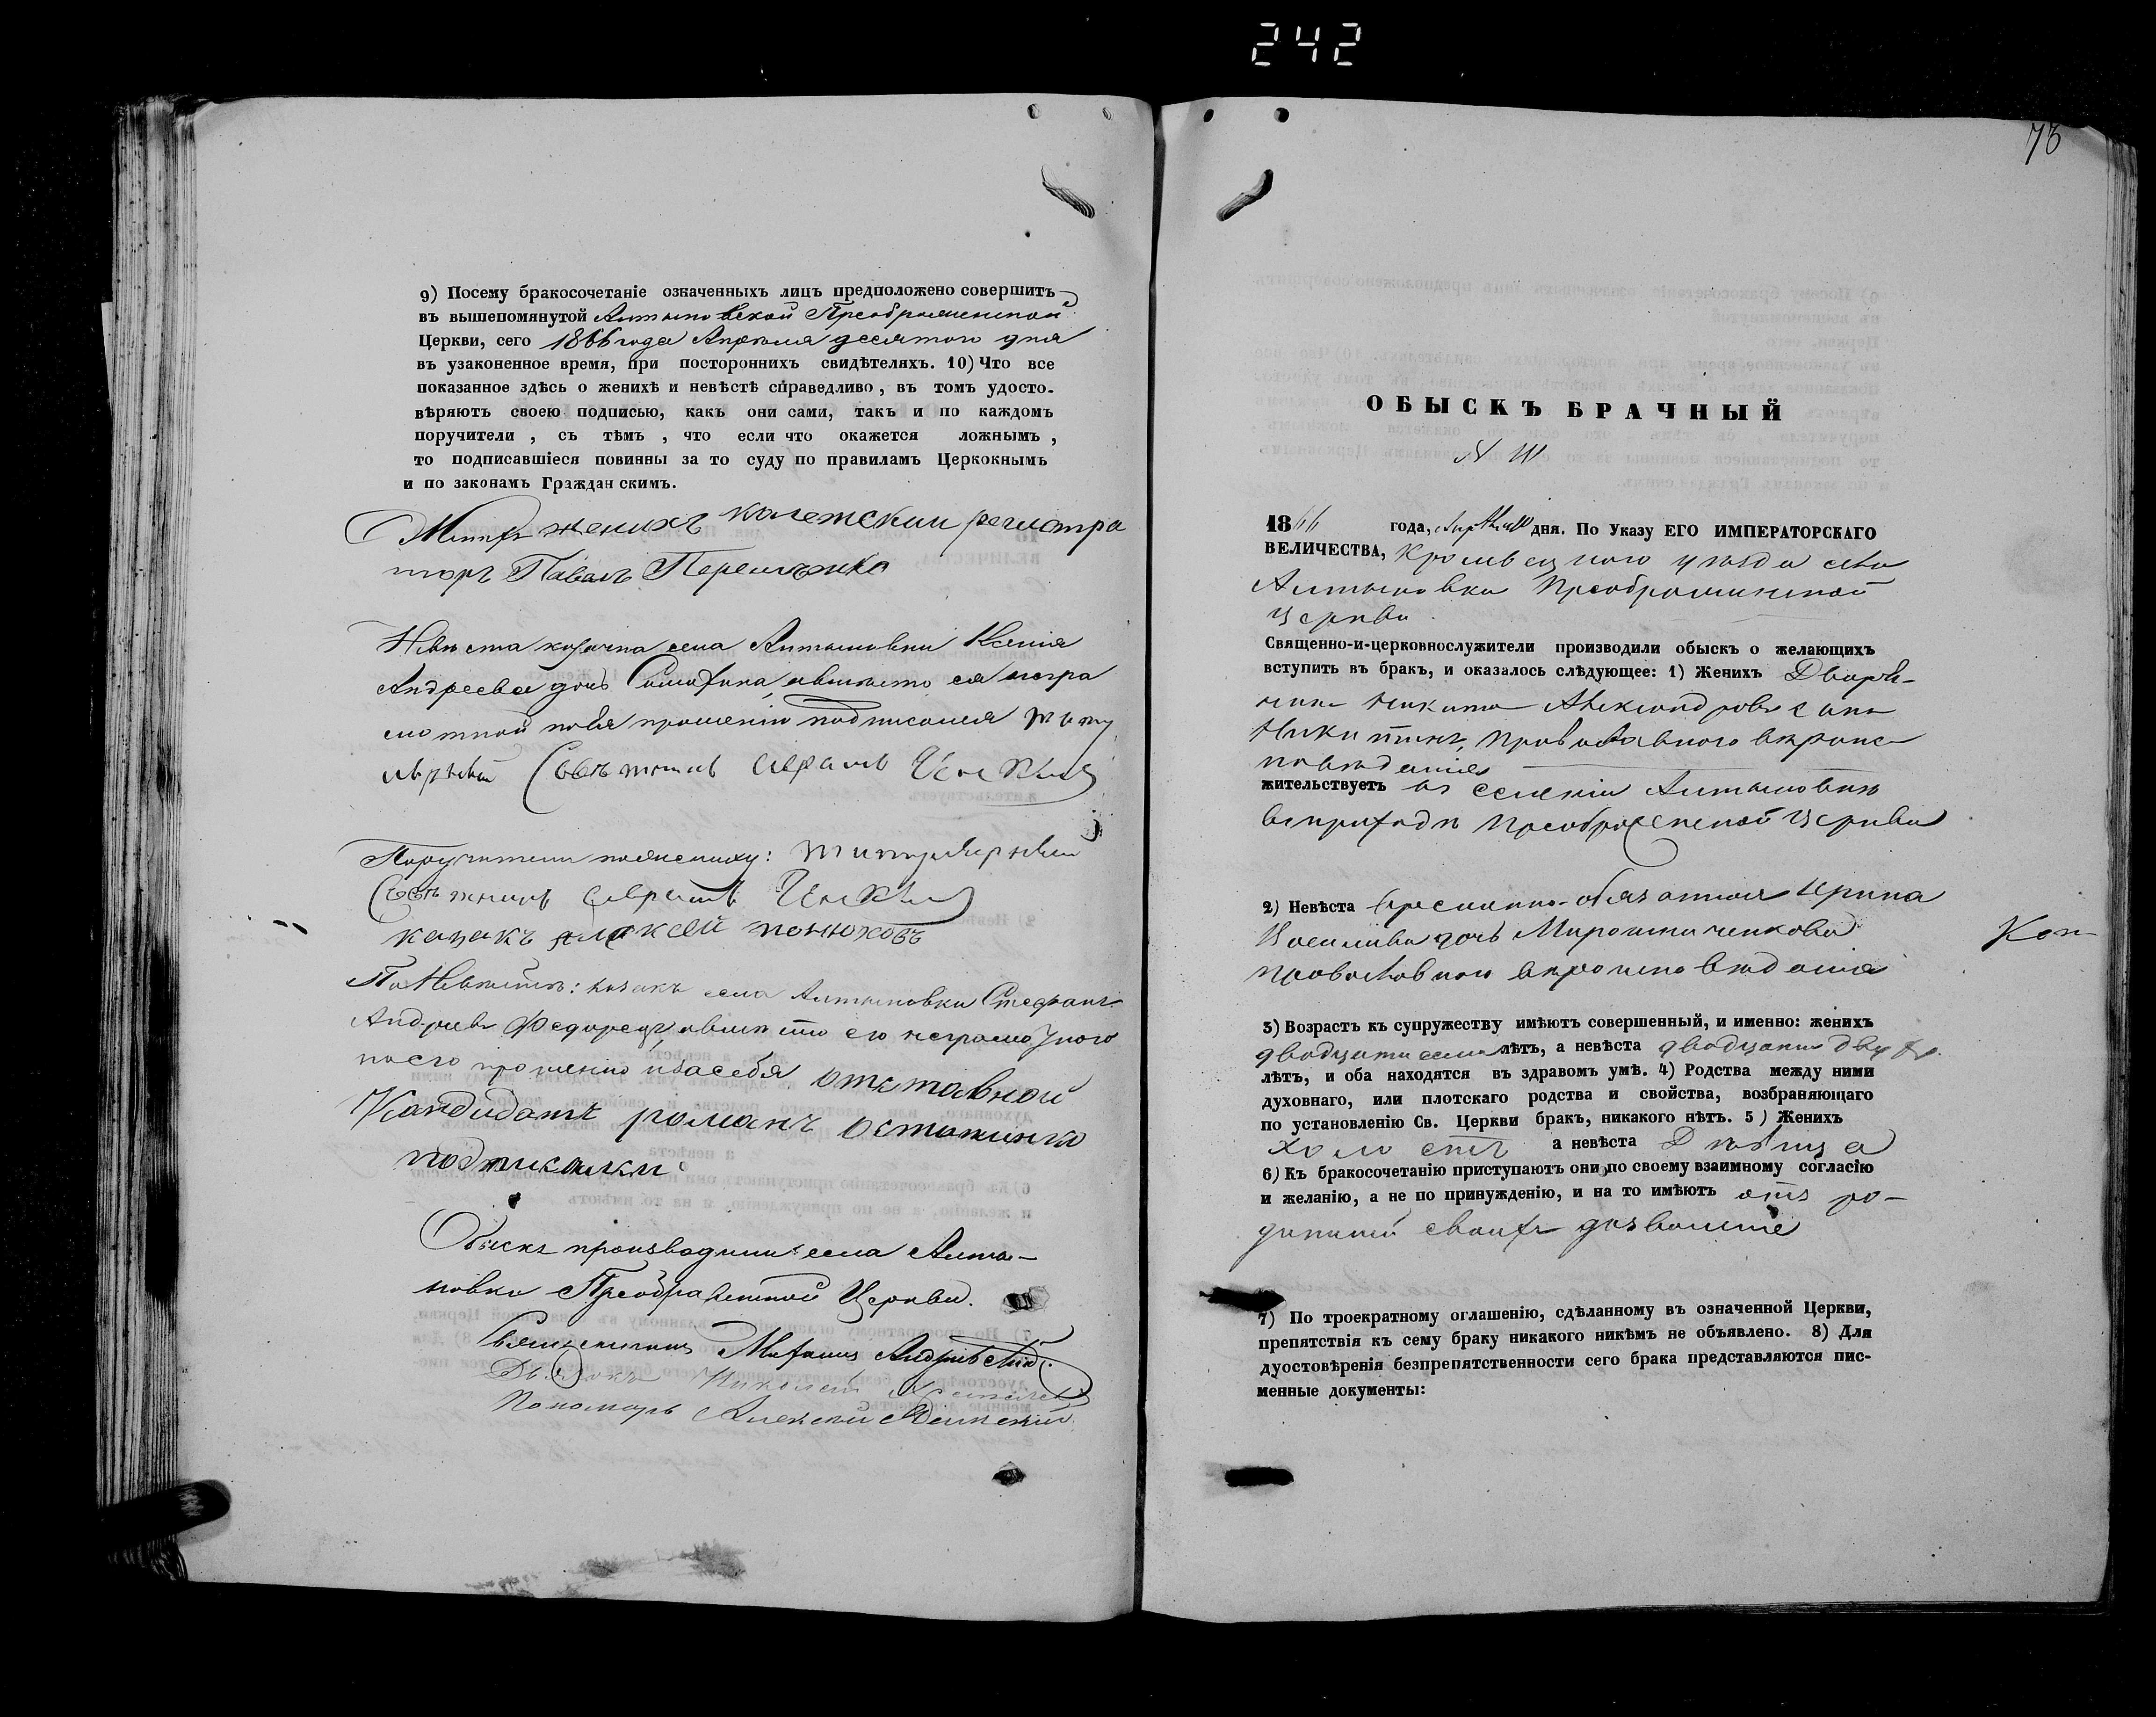 242
9) Посему бракосочетаніе означенныхъ лицъ предположено совершить
въ вышепомянутой Алтыновской Преображенской
Церкви, сего 1866 года Апрѣля десятого дня
въ узаконенное время, при постороннихъ свидѣтеляхъ. 10) Что все
показанное здѣсь о женихѣ и невѣстѣ справедливо, въ томъ удосто-
вѣряютъ своею подписью, какъ они сами, такъ и по каждомъ
поручители, съ тѣмъ, что если что окажется ложнымъ,
то подписавшіеся повинны за то суду по правиламъ Церкокнымъ
и по законамъ Гражданскимъ.
женихъ колежскии регистра
торъ Павелъ
Невѣста козачка села Алтыновки Ксенія
Андреева дочь а вмѣсто ея негра
мотной по ея прошенію подписался титу
лярный
Поручители по женихѣ: титулярный
казакъ алексей понюховъ
По Невѣстѣ: козакъ села Алтыновки Стефанъ
Андреевъ Федорецъ, а вмѣсто его неграмотного
по его прошенію и за себя отставной
Кандидатъ романъ
подписался
Обыскъ производили: села Алты-
новки Преображенской Церкви.
Священникъ Андріевскій
Дьячокъ Николай
Пономарь Алексей
73
ОБЫСКЪ БРАЧНЫЙ
N 10
1866 года, Апрѣля 10 дня. По Указу ЕГО ИМПЕРАТОРСКАГО
ВЕЛИЧЕСТВА, Кролевецкого уѣзда села
Алтыновки Преображенской
церкви
Священно-и-церковнослужители производили обыскъ о желающихъ
вступить въ бракъ, и оказалось слѣдующее: 1) Женихъ Дворя-
нинъ Никита Александровъ сынъ
Никитинъ, православного вѣроис
повѣданія
жительствуетъ въ селеніи Алтыновкѣ
въ приходѣ Преображенской церкви
2) Невѣста временно-обязанная Ирина
Василіева дочь Мирошниченкова
православного вѣроисповѣданія
Кон
3) Возрастъ къ супружеству имѣютъ совершенный, и именно: женихъ
двадцати семи лѣтъ, а невѣста двадцати двухъ
лѣтъ, и оба находятся въ здравомъ умѣ. 4) Родства между ними
духовнаго, или плотскаго родства и свойства, возбраняющаго
по установленію Св. Церкви бракъ, никакого нѣтъ. 5) Женихъ
холостъ а невѣста Дѣвица
6) Къ бракосочетанію приступаютъ они по своему взаимному согласію
и желанію, а не по принужденію, и на то имѣютъ отъ ро-
дителей своихъ дозволеніе
7) По троекратному оглашенію, сдѣланному въ означенной Церкви,
препятствія къ сему браку никакого никѣмъ не объявлено. 8) Для
дуостовѣренія безпрепятственности сего брака представляются пис-
менные документы: